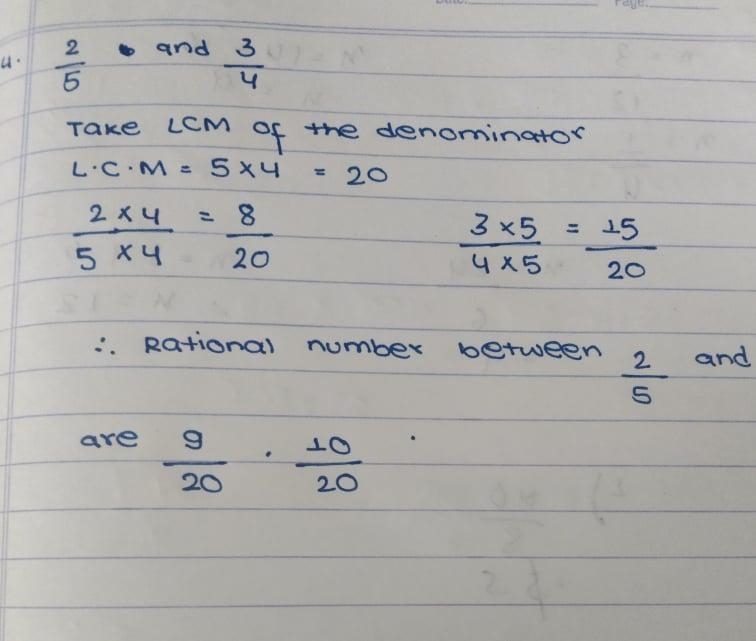 4. 2/5 and 3/4
Take LCM of the denominator
L.C.M = 5 x 4 = 20
2 x 4 / 5 x 4 = 8/20 3 x 5 / 4 x 5 = 15/20
∴ Rational number between 2/5 and
are 9/20 . 10/20 .